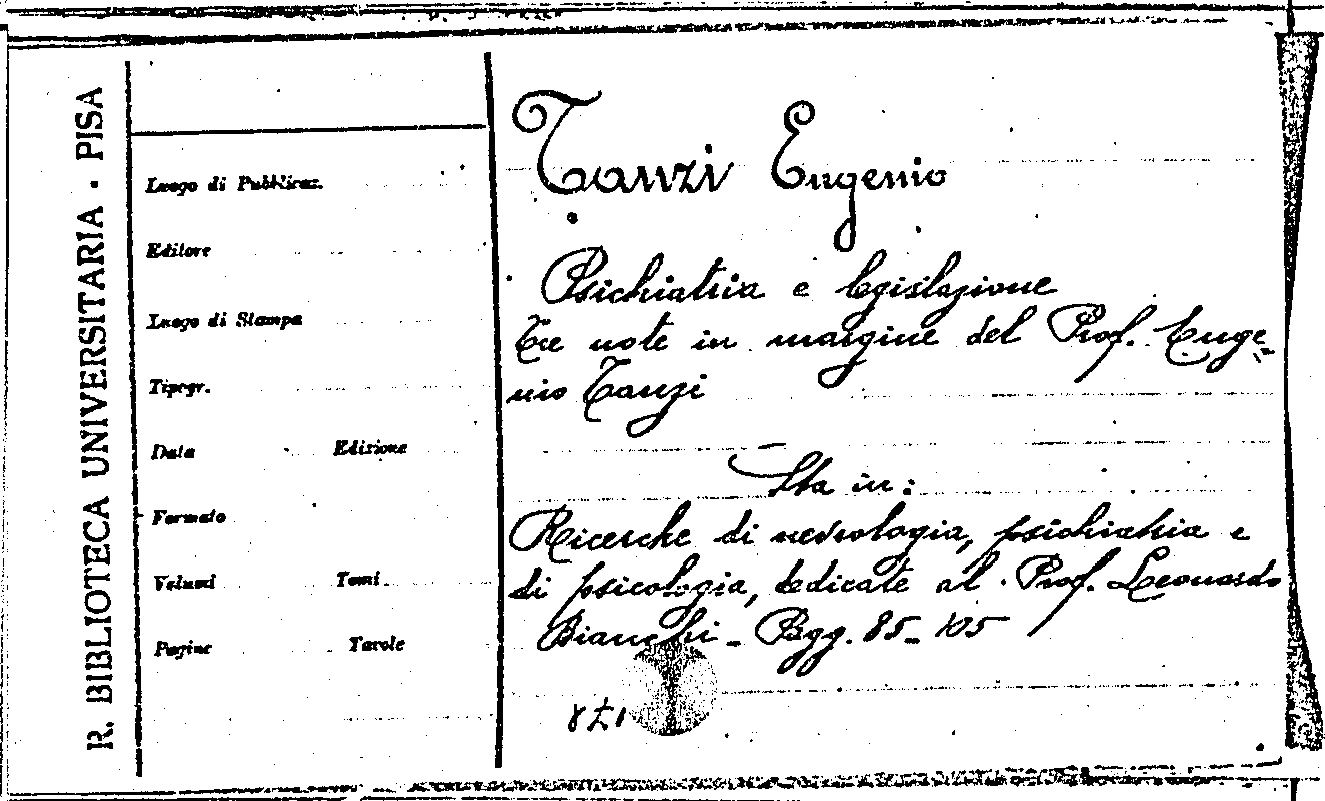 R. BIBLIOTECA UNIVERSITARIA · PISA
Luogo di Pubblicaz.
Editore
Luogo di Stampa
Tipogr.
Data Edizione
Formato
Volumi Tomi
Pagine Tavole
Tanzi Eugenio
Psichiatria e legislazione
Tre note in margine del Prof. Euge-
nio Tanzi
Sta in:
Ricerche di nevrologia, psichiatria e
di psicologia, dedicate al Prof. Leonardo
Bianchi - Pgg. 85-105